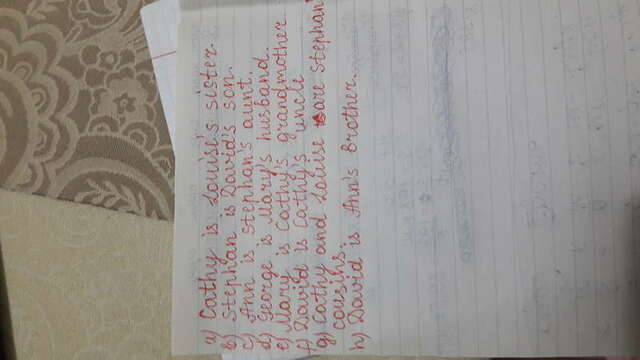 a) Cathy is Louise's sister.
b) Stephan is David's son.
c) Ann is Stephan's aunt.
d) George is Mary's husband.
e) Mary is Cathy's grandmother
f) David is Cathy's uncle
g) Cathy and Louise are Stephan
cousins.
h) David is Ann's Brother.